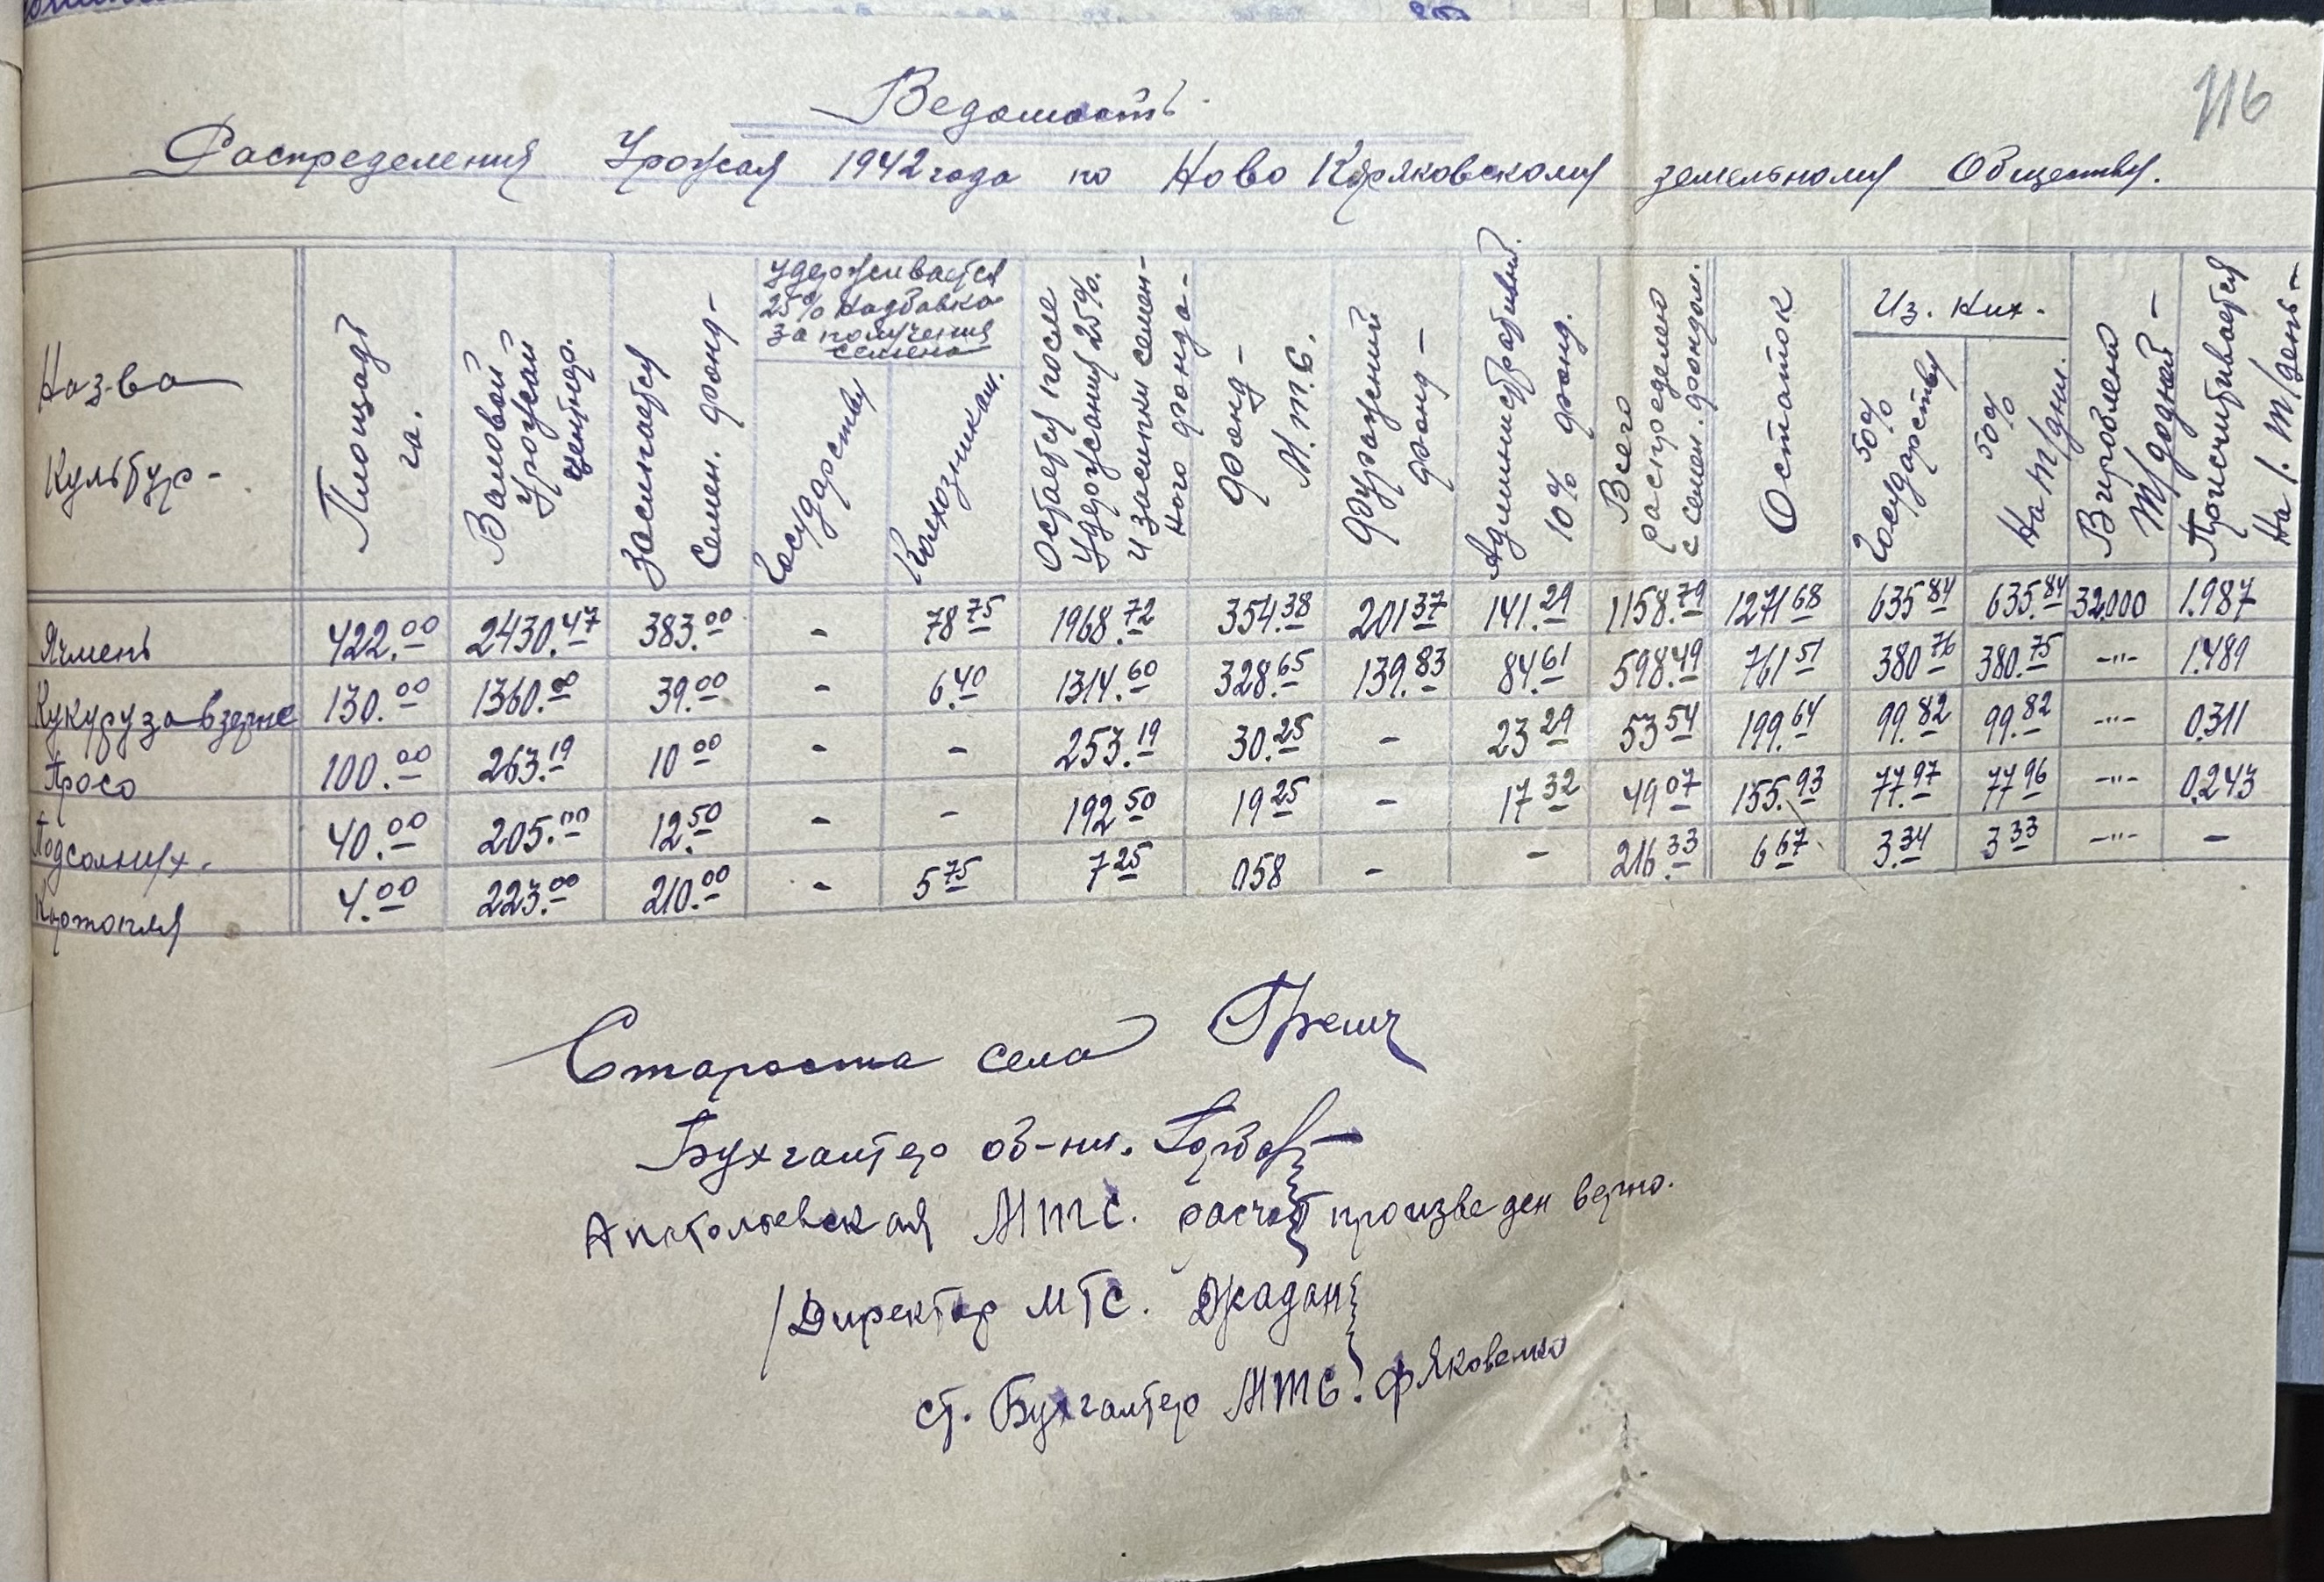 116
Ведомость
Распределения Урожая 1942 года по Ново Каряковскому земельному Обществу.
Назва Культур-
Площадь га.
Валовой Урожай центнер.
Засыпается семен. фонд-
Удерживается 25% надбавка за получения семена
Государству
Колхозникам.
Остается после удержания 25% и засыпки семенного фонда-
Фонд- М.т.с.
Фуражений фонд-
Административн. 10% фонд.
Всего распределено с семен. фондом.
Остаток
Из. них.
50% Государству
50% На т/дни.
Выроблено т/додней-
Присчитывается На 1. т/день-
Ячмень 422.00 2430.47 383.00 - 78 75 1968.72 354.38 201 37 141.29 1158.79 1271 68 635 84 635.84 32.000 1.987
Кукуруза в зерне 130.00 1360.00 39.00 - 6.40 1314.60 328.65 139.83 84.61 598.49 761 51 380 76 380.75 -"- 1.489
Просо 100.00 263.19 10 00 - - 253.19 30.25 - 23 29 53 54 199.64 99.82 99.82 -"- 0.311
Подсолнух. 40.00 205.00 12.50 - - 192 50 19 25 - 17 32 49 07 155.93 77.97 77 96 -"- 0.243
Картопля 4.00 223.00 210.00 - 5 75 7 25 058 - - 216.33 6 67 3.34 3 33 -"- -
Староста села
Бухгалтер об-ни.
Анатольевская МТС. расчет произведен верно.
/Директор МТС. Джадан
ст. Бухгалтер МТС. Ф Яковенко